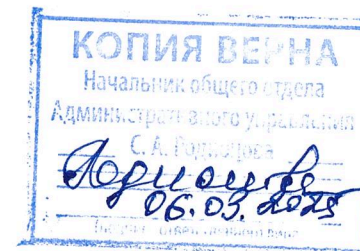 КОПИЯ ВЕРНА
Начальник общего отдела
Административного управления
С. А. Родионова
Родионова
06.03.2025